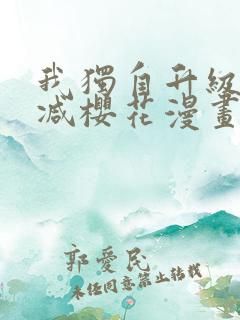 我獨自升級
减櫻花漫畫
郭愛民
未经同意禁止转载